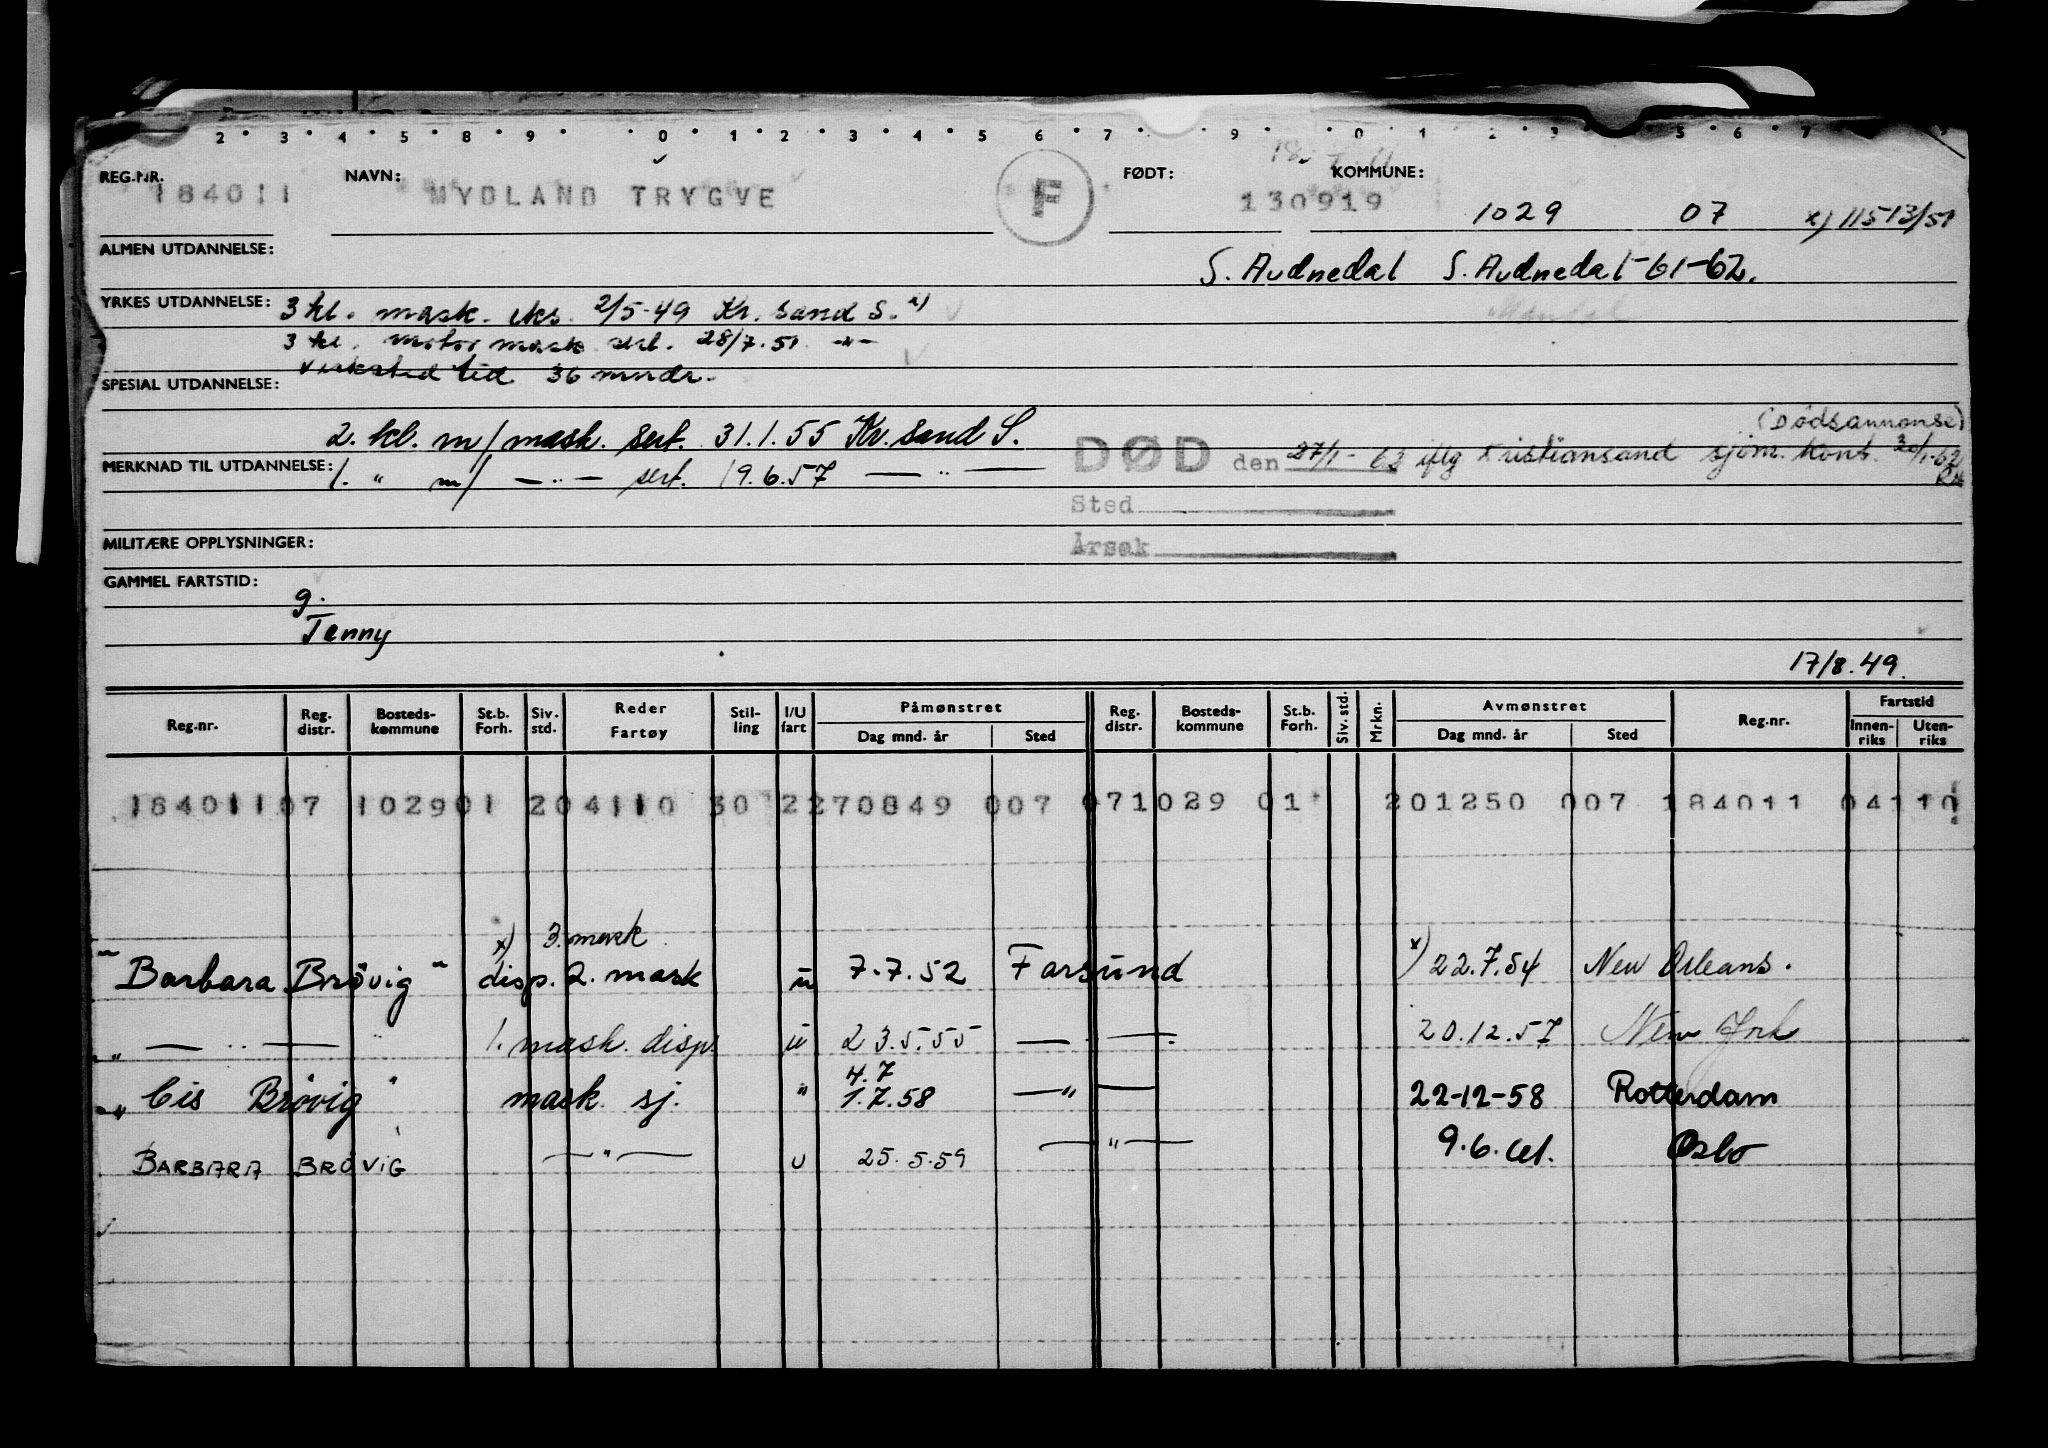 2 · 3 · 4 · 5 · 8 · 9 · 0 · 1 · 2 · 3 · 4 · 5 · 6 · 7 · 9 · 0 · 1 · 2 · 3 · 5 · 6 · 7
REG.NR. 184011 NAVN: MYDLAND TRYGVE F FØDT: 130919 KOMMUNE: 1029 07 x) 11513/51
ALMEN UTDANNELSE: S. Audnedal S. Audnedal-61-62.
YRKES UTDANNELSE: 3 kl. mask. eks. 2/5-49 Kr. sand S. x)
3 kl. motor mask sert. 28/7.51 -"-
Verksted tid 36 mndr.
SPESIAL UTDANNELSE:
2. kl. m/mask. sert. 31.1.55 Kr. sand S. (Dødsannonse)
DØD den 27/1-62 iflg Kristiansand sjøm. kont. 30/1-62
MERKNAD TIL UTDANNELSE: 1. " m/ — " — sert. 19.6.57 — " —
Sted
Årsak
MILITÆRE OPPLYSNINGER:
GAMMEL FARTSTID:
g.
Tenny
17/8.49.
Reg.nr. Reg. distr. Bosteds-kommune St.b. Forh. Siv. std. Reder Fartøy Stil-ling I/U fart Påmønstret Dag mnd. år Sted Reg. distr. Bosteds-kommune St.b. Forh. Siv. std. Mrkn. Avmønstret Dag mnd. år Sted Reg.nr. Fartstid Innen-riks Uten-riks
18401107 102901 204110 30 2270849 007 071029 01 201250 007 184011 04110
x) 3. mask
"Barbara Brøvig" disp. 2. mask u 7.7.52 Farsund x) 22.7.54 New Orleans.
" — " — " 1. mask. disp. u 23.5.55 — " — 20.12.57 New York
4.7
" Cis Brøvig " mask sj. " 1.7.58 — " — 22-12-58 Rotterdam
BARBARA BRØVIG — " — u 25.5.59 — " — 9.6.61. Oslo